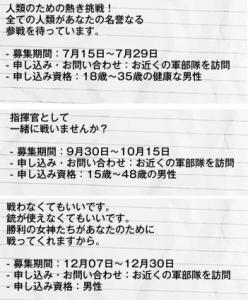 人類のための熱き挑戦！
全ての人類があなたの名誉なる
参戦を待っています。
- 募集期間：7月15日～7月29日
- 申し込み・お問い合わせ：お近くの軍部隊を訪問
- 申し込み資格：18歳～35歳の健康な男性
指揮官として
一緒に戦いませんか？
- 募集期間：9月30日～10月15日
- 申し込み・お問い合わせ：お近くの軍部隊を訪問
- 申し込み資格：15歳～48歳の男性
戦わなくてもいいです。
銃が使えなくてもいいです。
勝利の女神たちがあなたのために
戦ってくれますから。
- 募集期間：12月07日～12月30日
- 申し込み・お問い合わせ：お近くの軍部隊を訪問
- 申し込み資格：男性